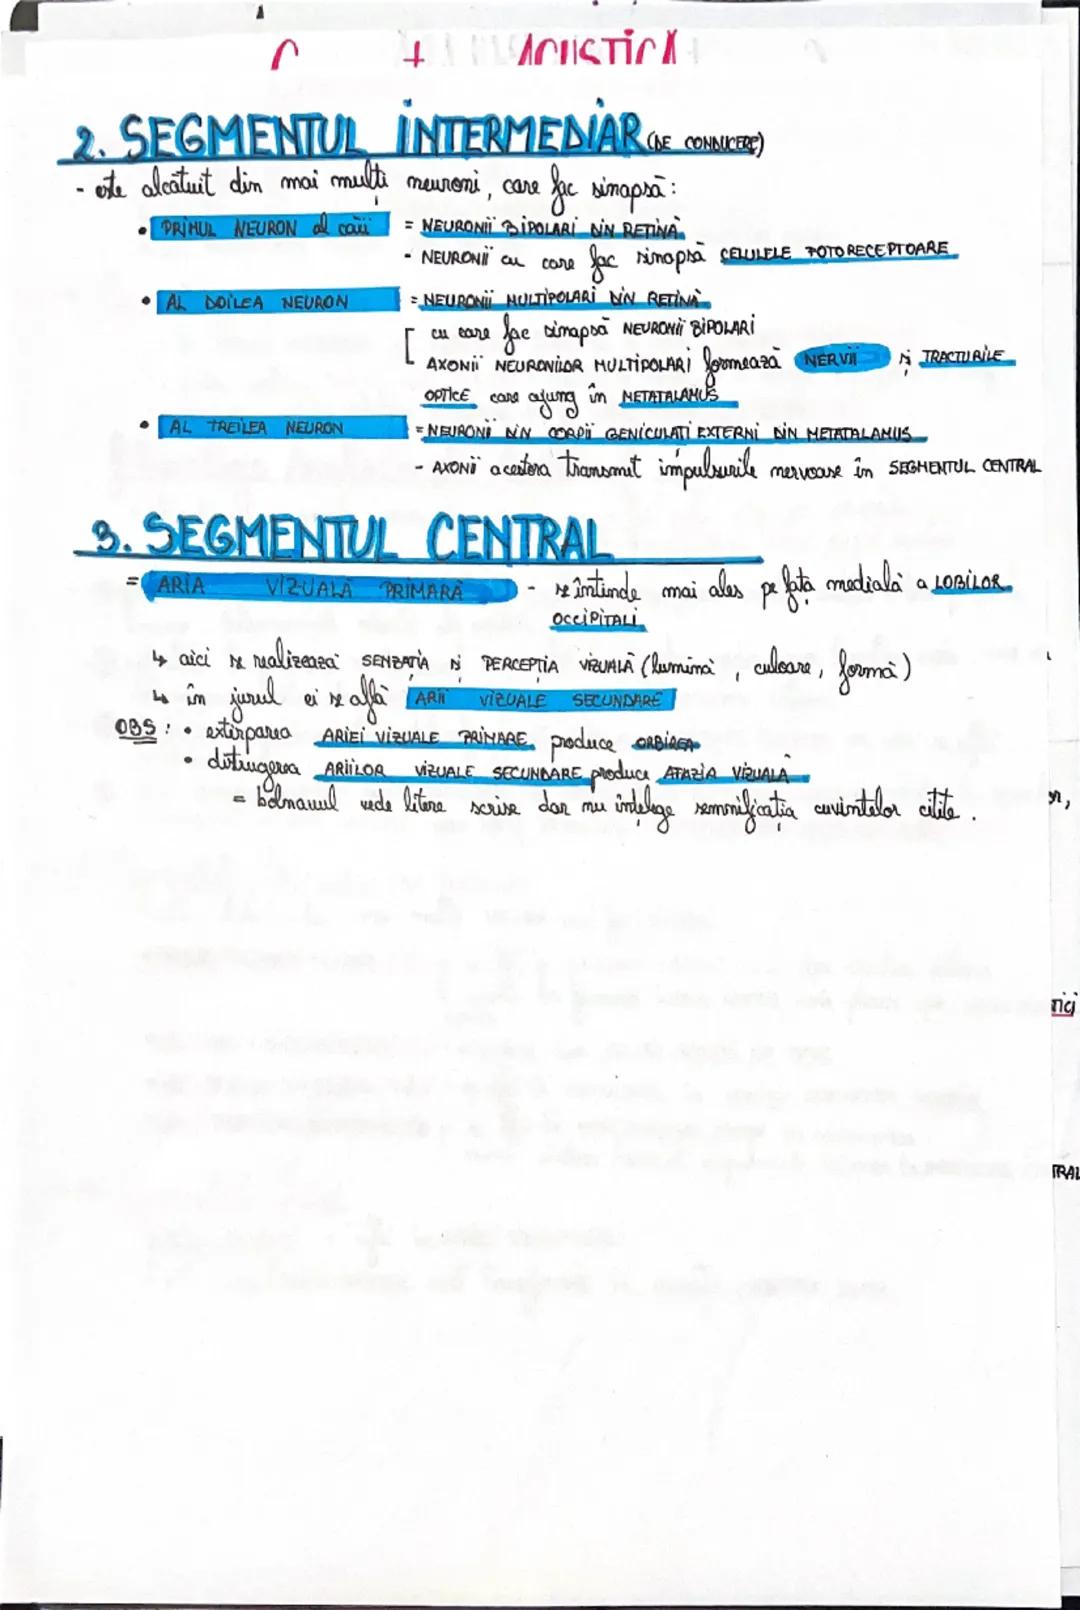 ACUSTICA
2. SEGMENTUL INTERMEDIAR (DE CONDUCERE)
- este alcătuit din mai mulți neuroni, care fac sinapsă:
• PRIMUL NEURON al căii = NEURONII BIPOLARI DIN RETINĂ
- NEURONII cu care fac sinapsă CELULELE FOTORECEPTOARE
• AL DOILEA NEURON = NEURONII MULTIPOLARI DIN RETINĂ
cu care fac sinapsă NEURONII BIPOLARI
AXONII NEURONILOR MULTIPOLARI formează NERVII și TRACTURILE
OPTICE care ajung în METATALAMUS
• AL TREILEA NEURON = NEURONII DIN CORPII GENICULAȚI EXTERNI DIN METATALAMUS
- AXONII acestora transmit impulsurile nervoase în SEGMENTUL CENTRAL
3. SEGMENTUL CENTRAL
= ARIA VIZUALĂ PRIMARĂ - se întinde mai ales pe fața medială a LOBILOR
OCCIPITALI
↳ aici se realizează SENZAȚIA și PERCEPȚIA VIZUALĂ (lumină, culoare, formă)
↳ în jurul ei se află ARII VIZUALE SECUNDARE
OBS: • extirparea ARIEI VIZUALE PRIMARE produce ORBIREA
• distrugerea ARIILOR VIZUALE SECUNDARE produce AFAZIA VIZUALĂ
= bolnavul vede litere scrise dar nu înțelege semnificația cuvintelor citite.
TRAL